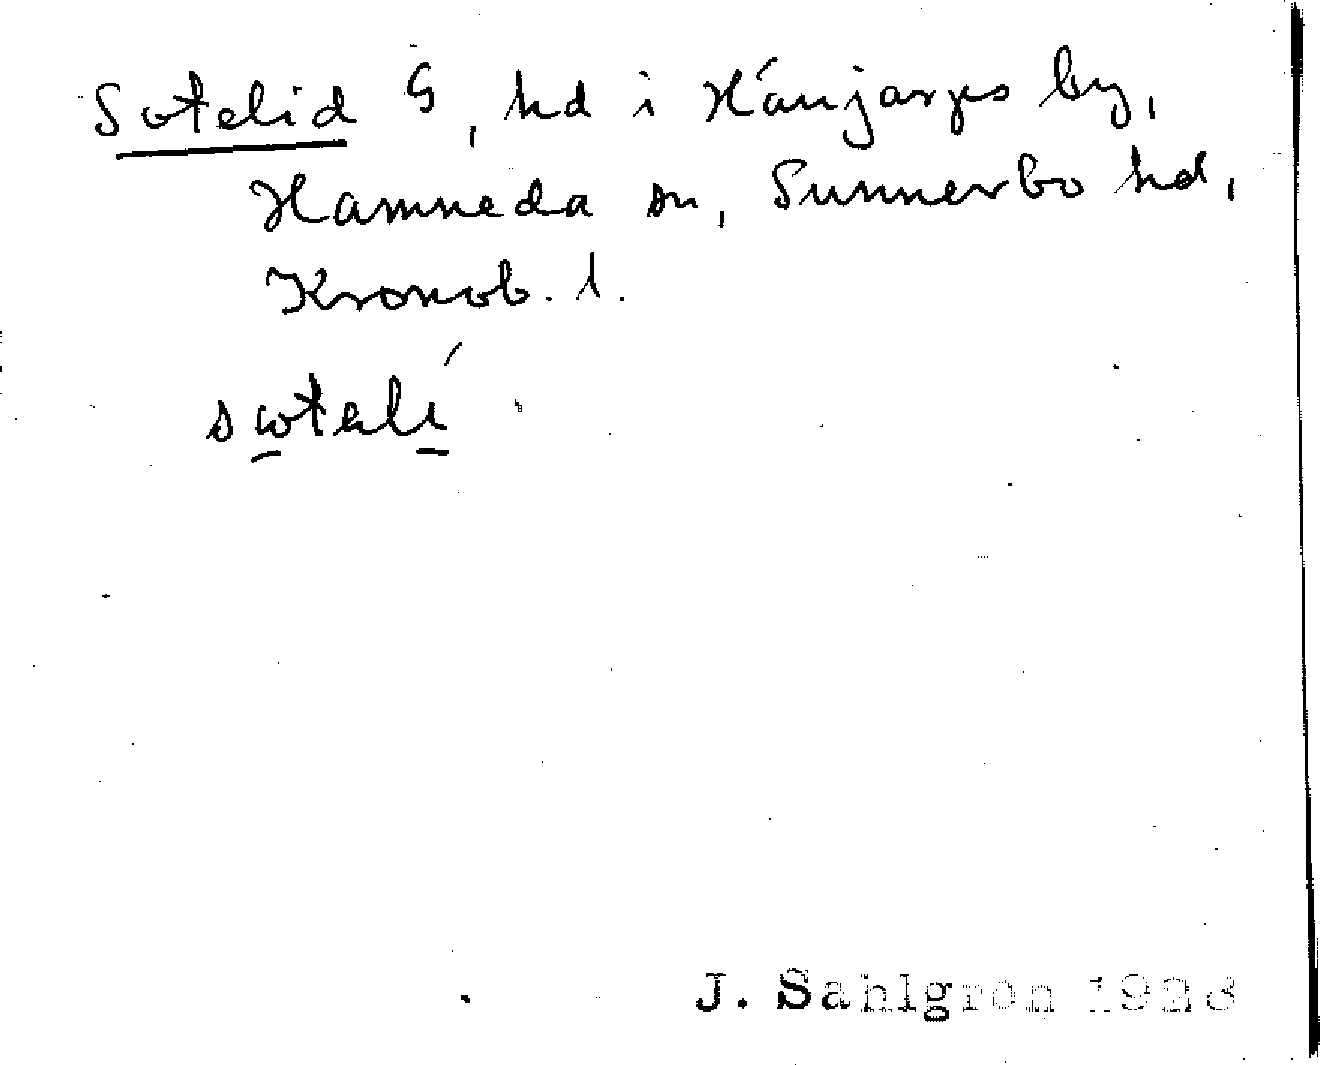 Sotelid G, hd i Hánjarps by,
Hamneda sn, Sunnerbo hd,
Kronob. l.
J. Sahlgren